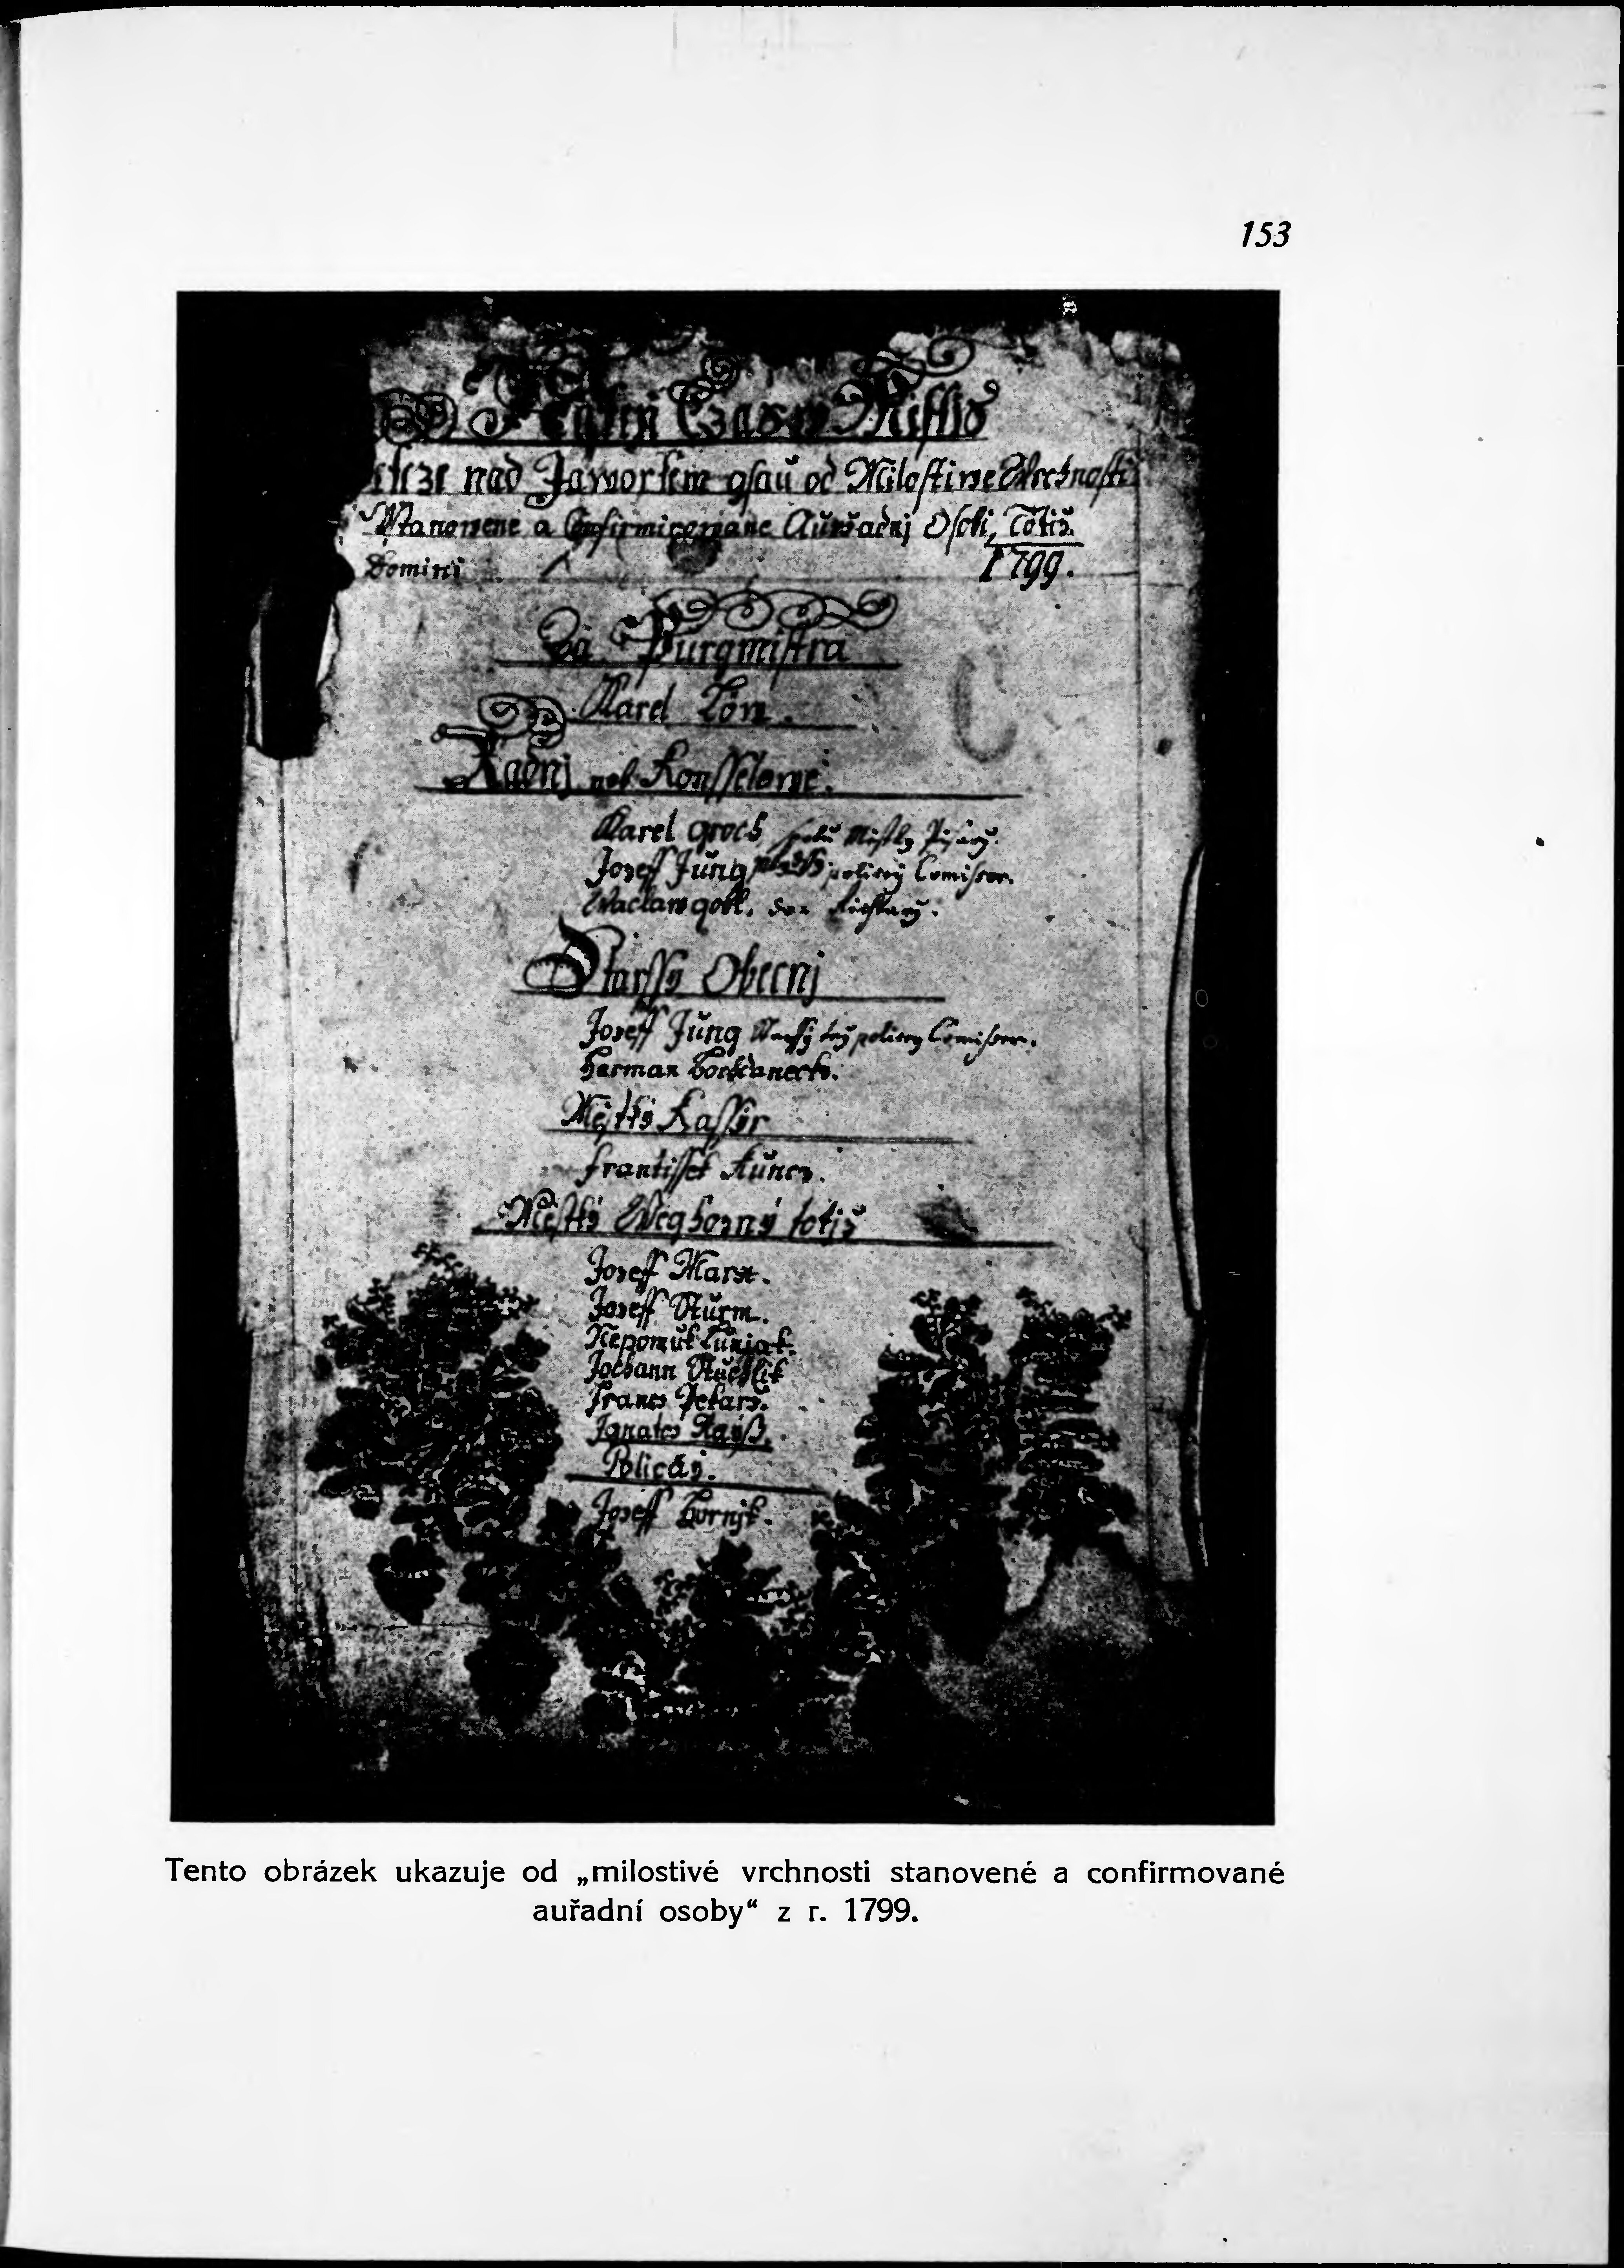 153
Czasy Miesstio
nad Jaworkem gsau od Milostiwe Wrchnosti
Stanowene a Confirmicyrowane Auržadnj Osobi, Totiž.
Domini 1799.
Za Purgmistra
Karel Zön.
Radnj neb Konsselowe.
Karel groch
Joseff Jung policey Comissar.
Waclaw
Starssy Obecnj
Joseff Jung policey Comissar.
Herman
Mestky Kassir
frantissek Kuncz.
Mestky Wegborny totiž
Joseff Marx.
Joseff Sturm.
Nepomuk
Johann Stuchlik
Franz Pekarz.
Ignatz
Policaj.
Joseff Hornjk.
Tento obrázek ukazuje od „milostivé vrchnosti stanovené a confirmované
auřadní osoby“ z r. 1799.